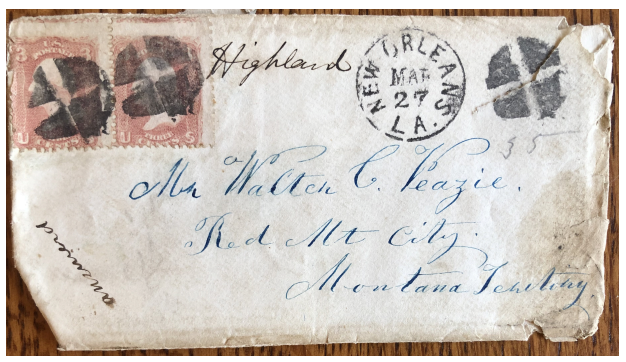 Highland
NEW ORLEANS
MAR
27
LA.
35
Mr Walter C. Veazie.
Red Mt City.
Montana Territory
3 U.S.
U S